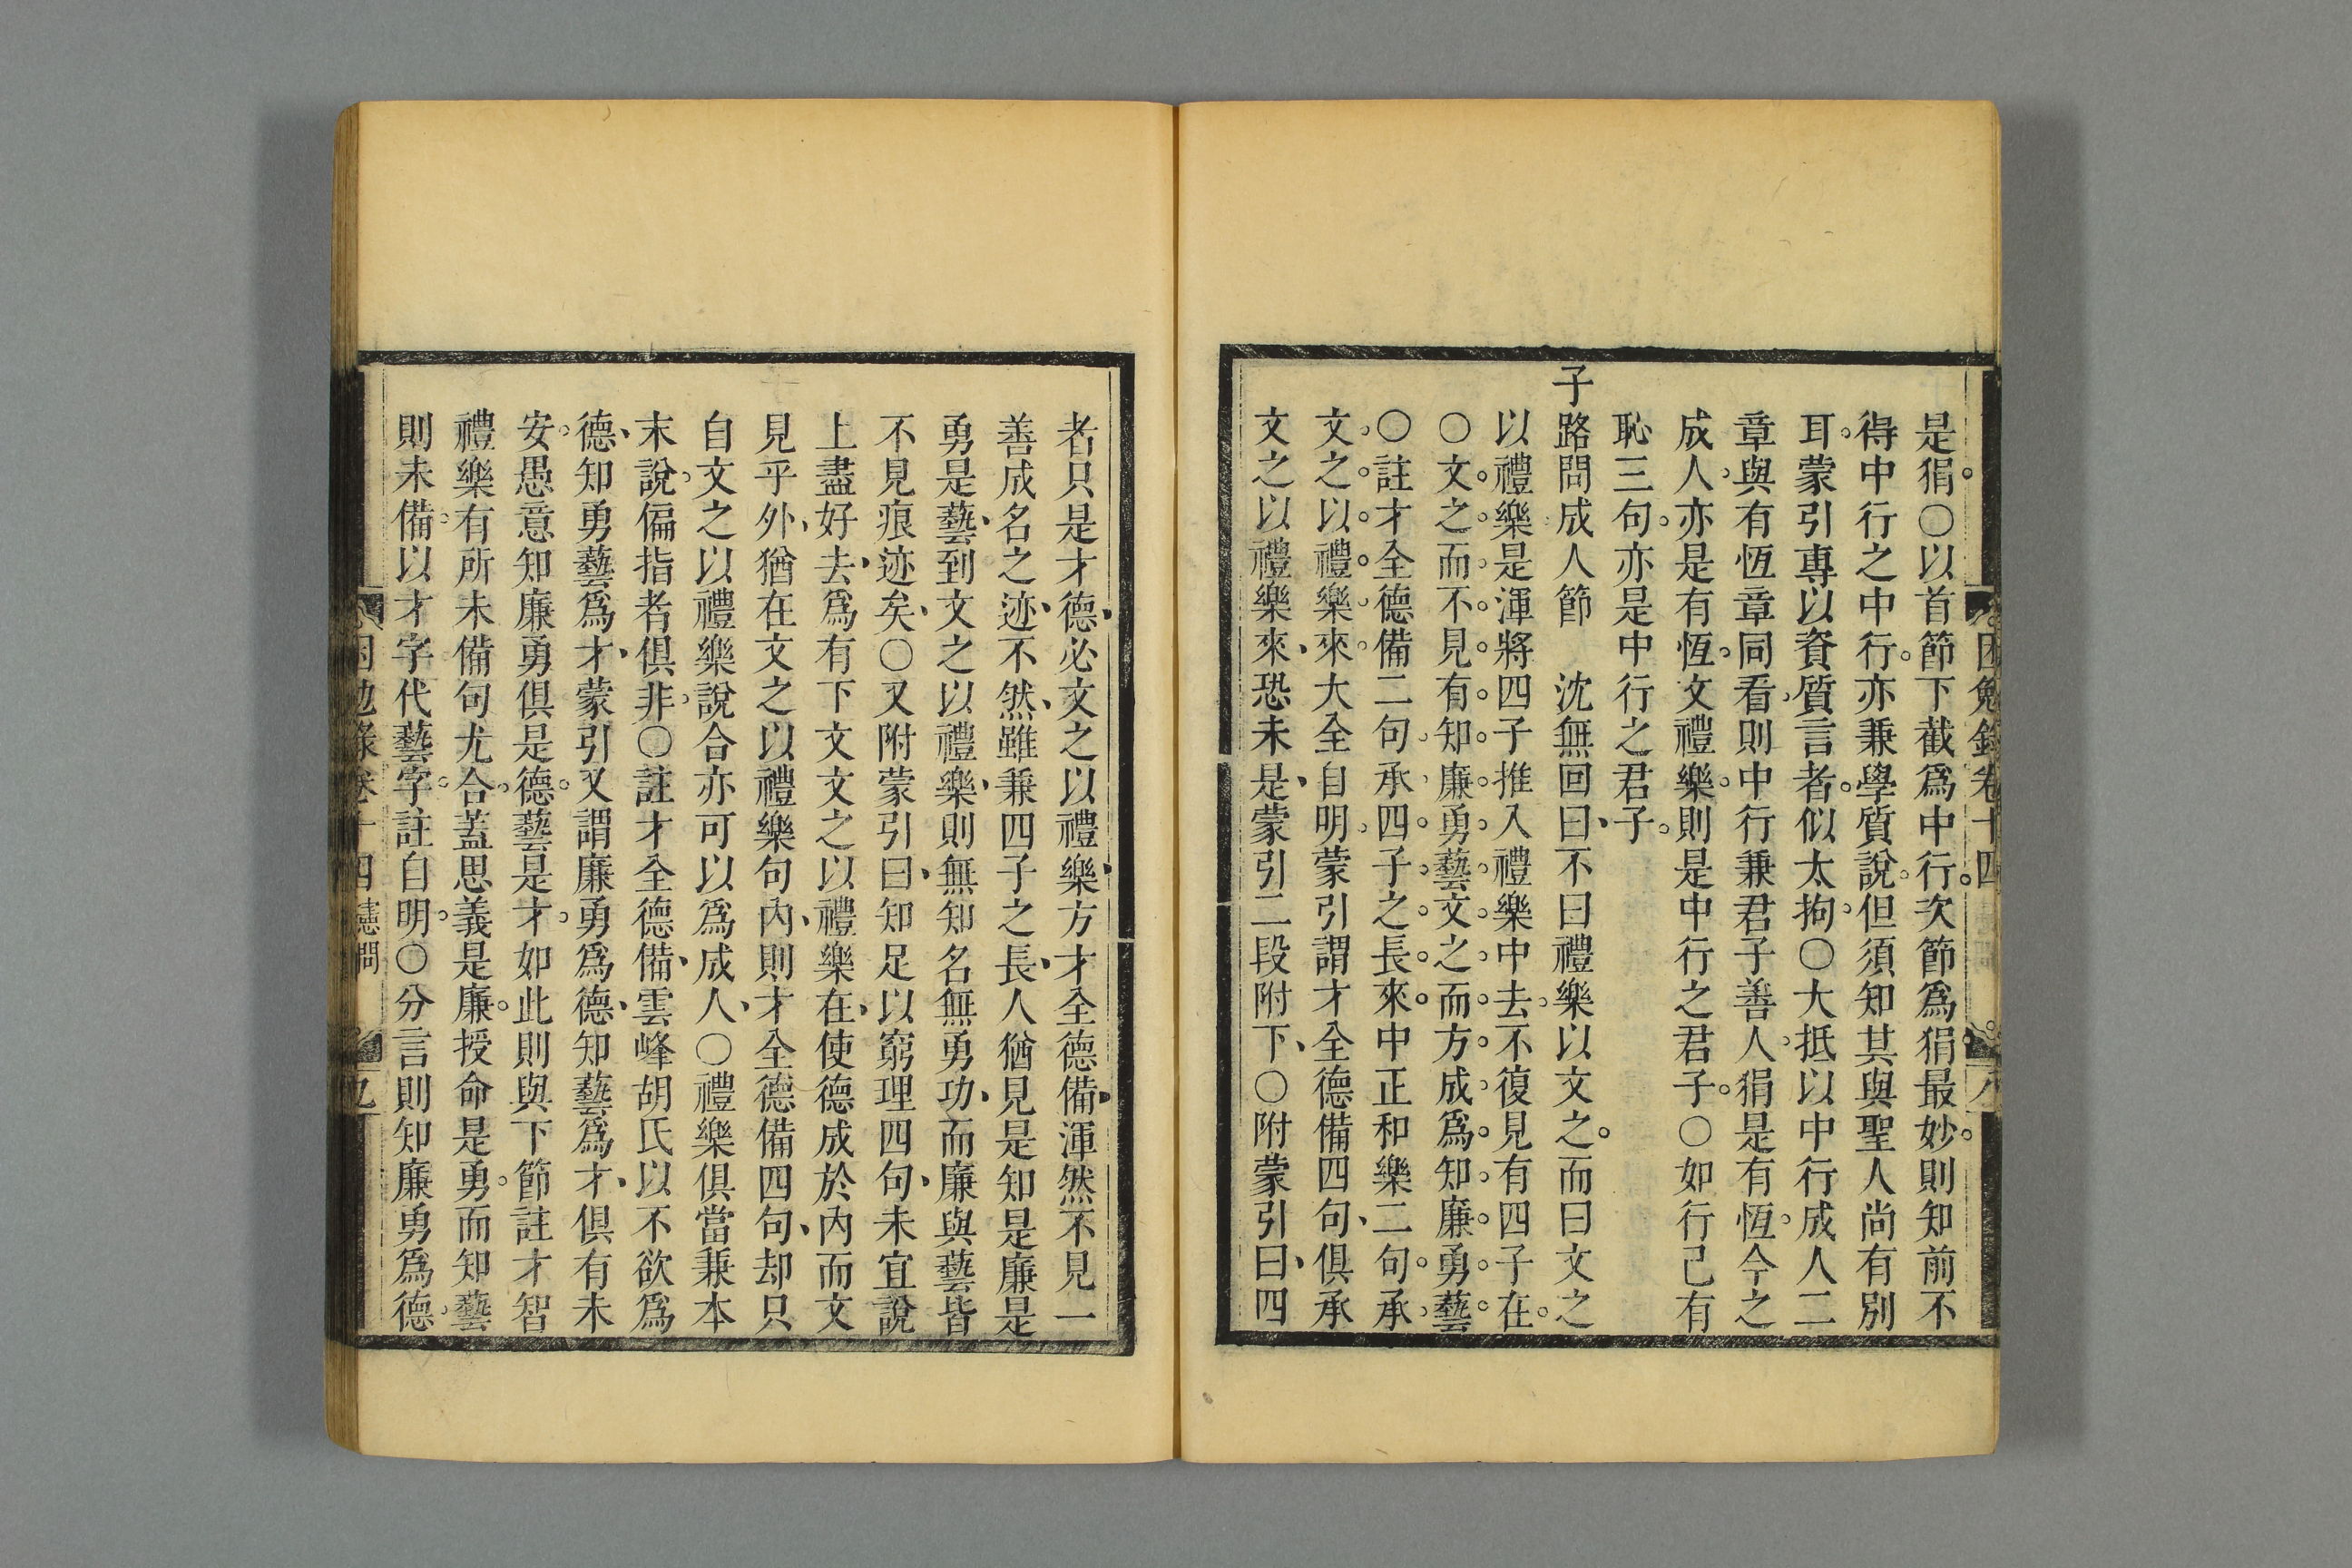 困勉錄卷十四
八
是狷○以首節下截爲中行次節爲狷最妙則知前不
得中行之中行亦兼學質說但須知其與聖人尚有別
耳蒙引專以資質言者似太拘○大抵以中行成人二
章與有恆章同看則中行兼君子善人狷是有恆今之
成人亦是有恆文禮樂則是中行之君子○如行己有
恥三句亦是中行之君子
子路問成人節　沈無回曰不曰禮樂以文之而曰文之
以禮樂是渾將四子推入禮樂中去不復見有四子在
○文之而不見有知廉勇藝文之而方成爲知廉勇藝
○註才全德備二句承四子之長來中正和樂二句承
文之以禮樂來大全自明蒙引謂才全德備四句俱承
文之以禮樂來恐未是蒙引二段附下○附蒙引曰四
者只是才德必文之以禮樂方才全德備渾然不見一
善成名之迹不然雖兼四子之長人猶見是知是廉是
勇是藝到文之以禮樂則無知名無勇功而廉與藝皆
不見痕迹矣○又附蒙引曰知足以窮理四句未宜說
上盡好去爲有下文文之以禮樂在使德成於內而文
見乎外猶在文之以禮樂句內則才全德備四句却只
自文之以禮樂說合亦可以爲成人○禮樂俱當兼本
末說偏指者俱非○註才全德備雲峰胡氏以不欲爲
德知勇藝爲才蒙引又謂廉勇爲德知藝爲才俱有未
安愚意知廉勇俱是德藝是才如此則與下節註才智
禮樂有所未備句尤合蓋思義是廉授命是勇而知藝
則未備以才字代藝字註自明○分言則知廉勇爲德
困勉錄卷十四 憲問
九